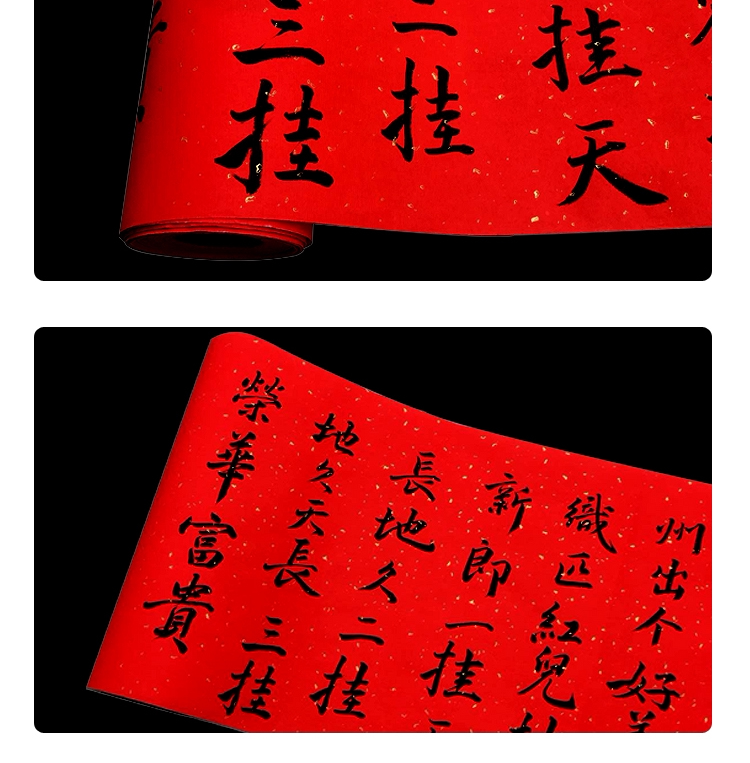 挂天
二挂
三挂
州出个好
織匹紅兒
新郎一挂
長地久二挂
地久天長三挂
榮華富貴